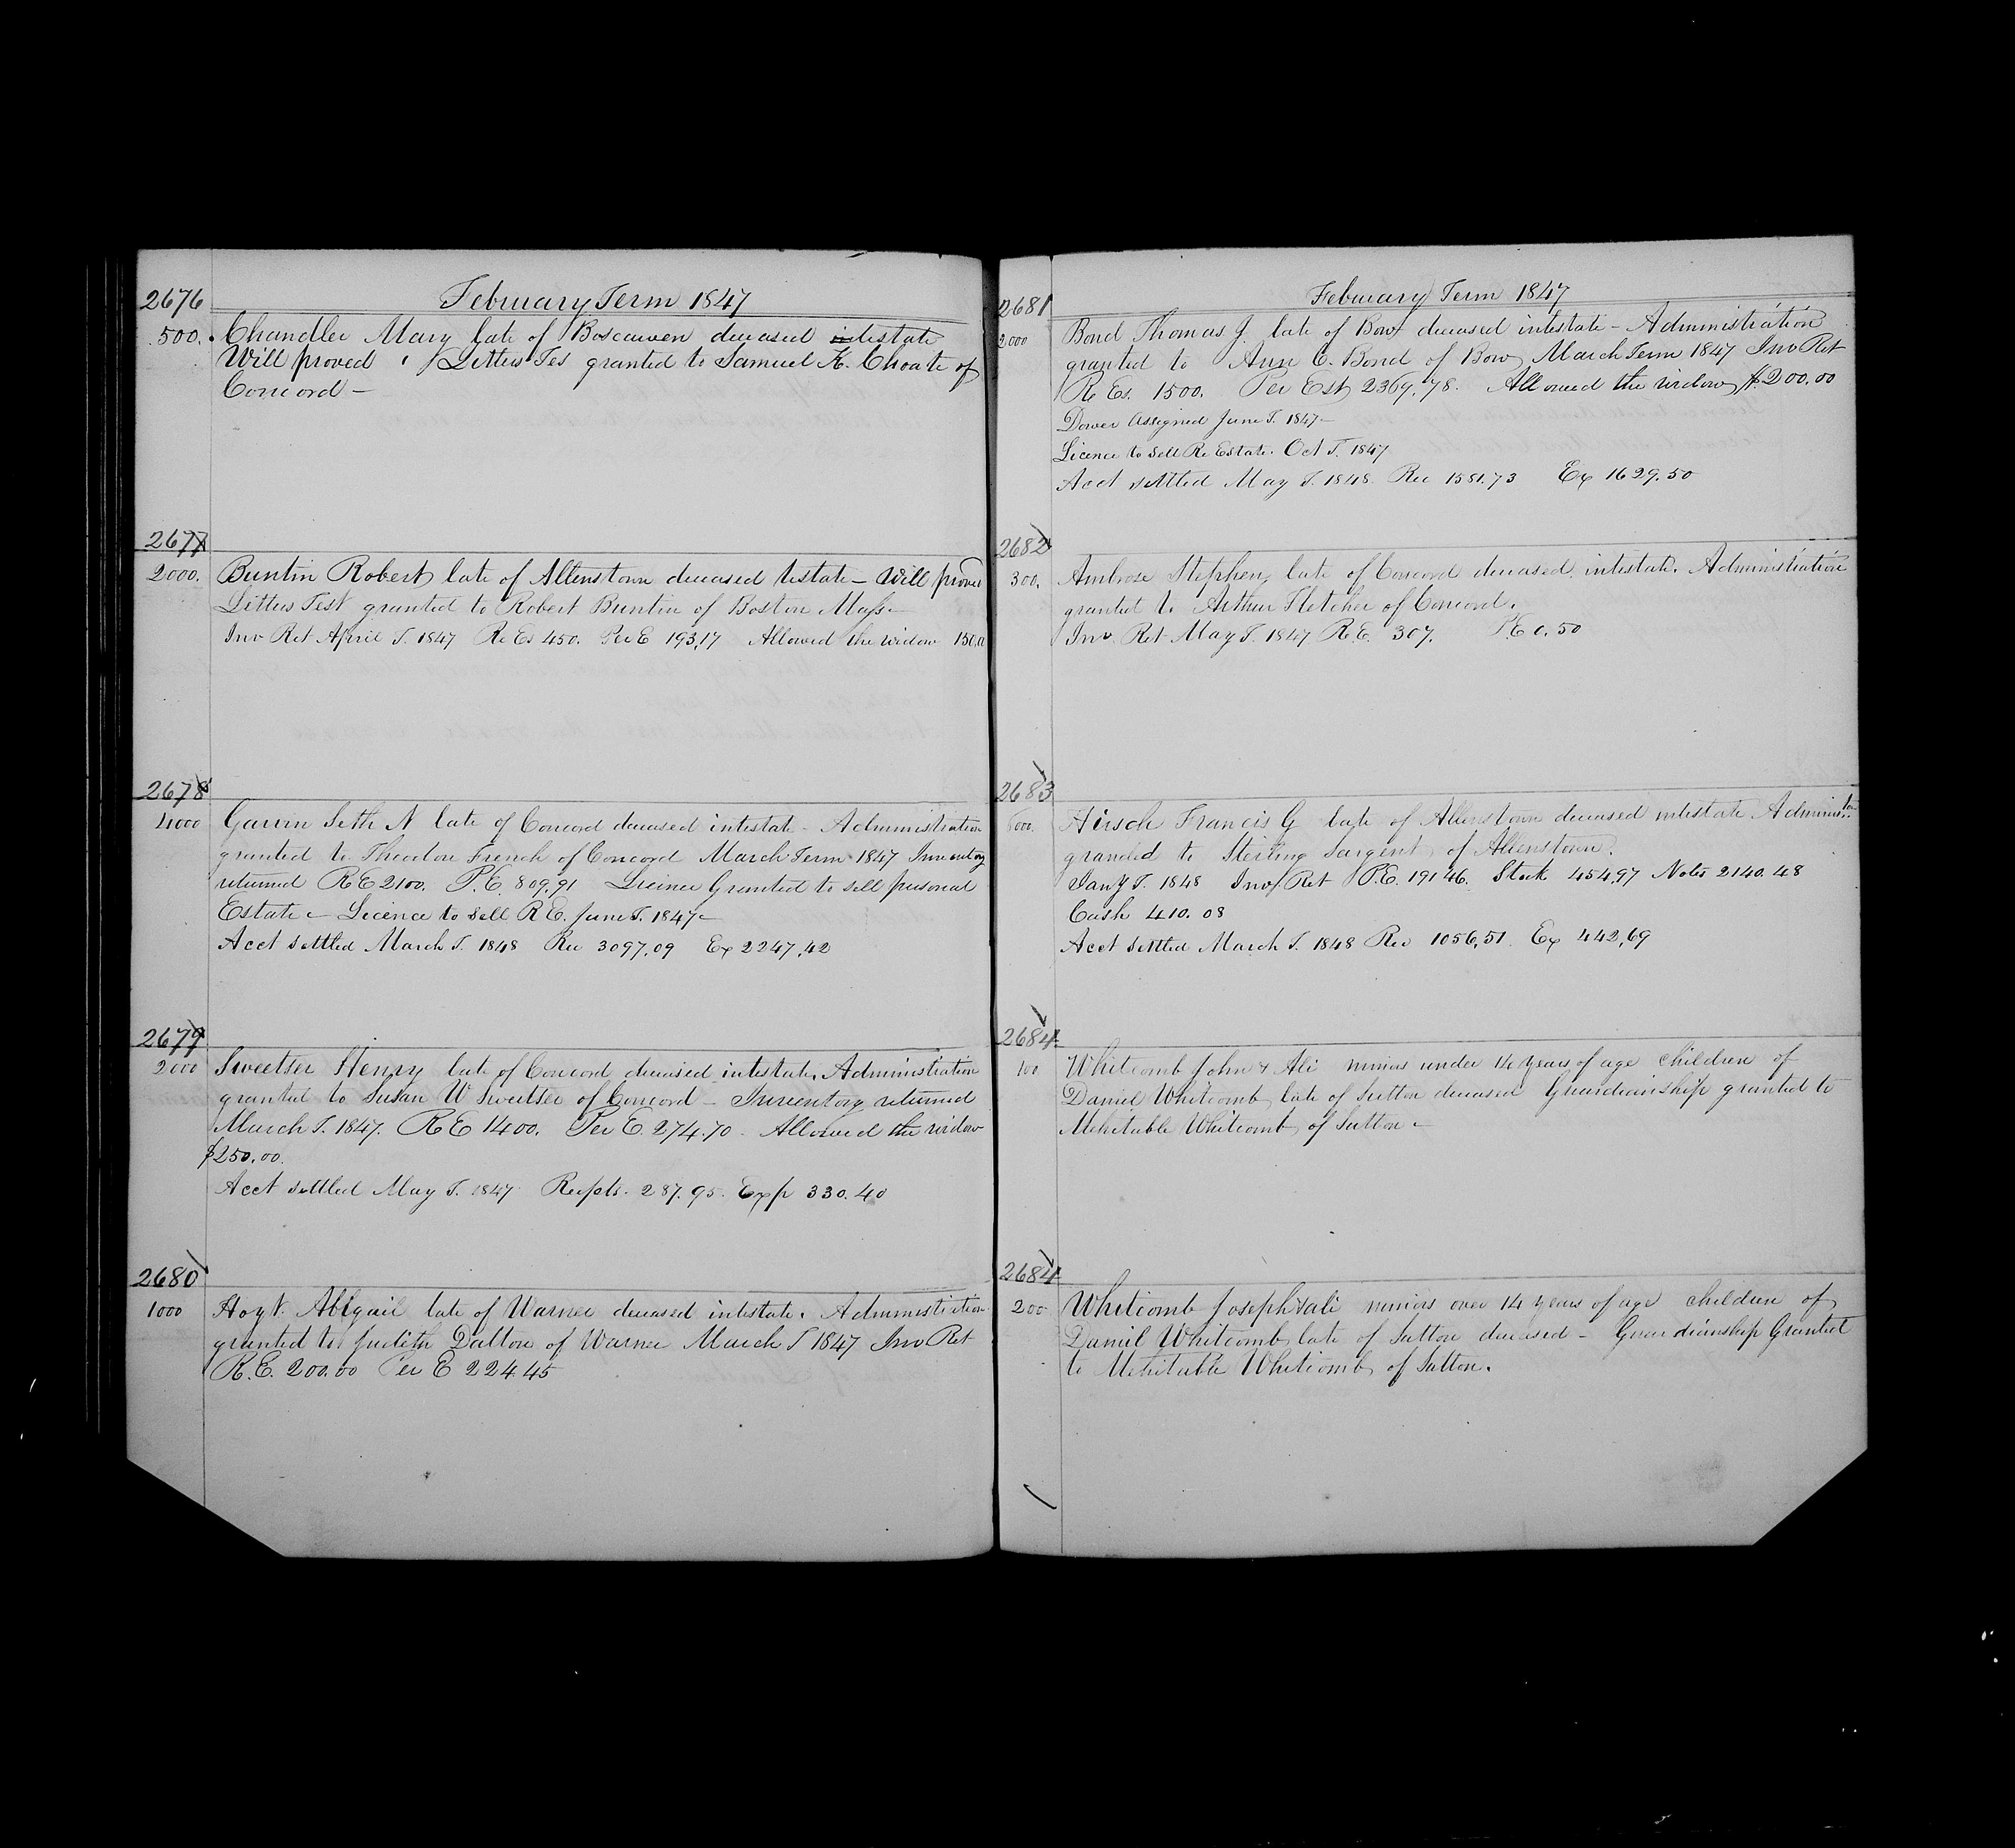 2676 February Term 1847
500. Chandler Mary late of Boscawen deceased intestate
Will proved Letters Tes granted to Samuel K. Choate of
Concord —
2677
2000. Buntin Robert late of Allenstown deceased testate — Will proved
Letters Test granted to Robert Buntin of Boston Mass —
Inv Ret April T. 1847 Re Es 450. Per E 193,17 Allowed the widow 150,0
2678
4000 Garvin Seth N late of Concord deceased intestate — Administration
granted to Theodore French of Concord March Term 1847 Inventory
returned R E 2100. P. E. 809,91 Licence Granted to sell personal
Estate — Licence to sell R E. June T. 1847 —
Acct settled March T. 1848 Rec 3097,09 Ex 2247,42
2679
2000 Sweetser Henry late of Concord deceased intestate. Administration
granted to Susan W Sweetser of Concord — Inventory returned
March T. 1847. R E 1400. Per E. 274.70 — Allowed the widow
$250.00.
Acct settled May T. 1847 Recpts. 287.95. Exp 330.40
2680
1000 Hoyt. Abigail late of Warner deceased intestate. Administration
granted to Judith Dalton of Warner March T 1847 Inv Ret
R. E. 200.00 Per E 224.45
2681 February Term 1847
2000 Bond Thomas J. late of Bow deceased intestate — Administration
granted to Ann C. Bond of Bow March Term 1847 Inv Ret
R Es. 1500. Per Est 2369.78. Allowed the widow $200.00
Dower Assigned June T. 1847 —
Licence to sell Re Estate. Oct T. 1847
Acct settled May T. 1848. Rec 1581.73 Ex 1629.50
2682
300. Ambrose Stephen, late of Concord deceased, intestate. Administration
granted to Arthur Fletcher of Concord.
Inv. Ret May T. 1847 R. E. 307. P. E 0.50
2683
Hirsch Francis G late of Allenstown deceased intestate Administon
granded to Sterling Sargent of Allenstown.
Jany T. 1848 Inv Ret P. E. 191 46. Stock 454.97 Notes 2140.48
Cash 410.08
Acct settled March T. 1848 Rec 1056,51 Ex 442,69
2684
100 Whitcomb John & Ali minors under 14 years of age children of
Daniel Whitcomb late of Sutton deceased Guardianship granted to
Mehitable Whitcomb of Sutton —
2684
200 Whitcomb Joseph & ali minors over 14 years of age children of
Daniel Whitcomb late of Sutton deceased — Guardianship Granted
to Mehitable Whitcomb of Sutton.